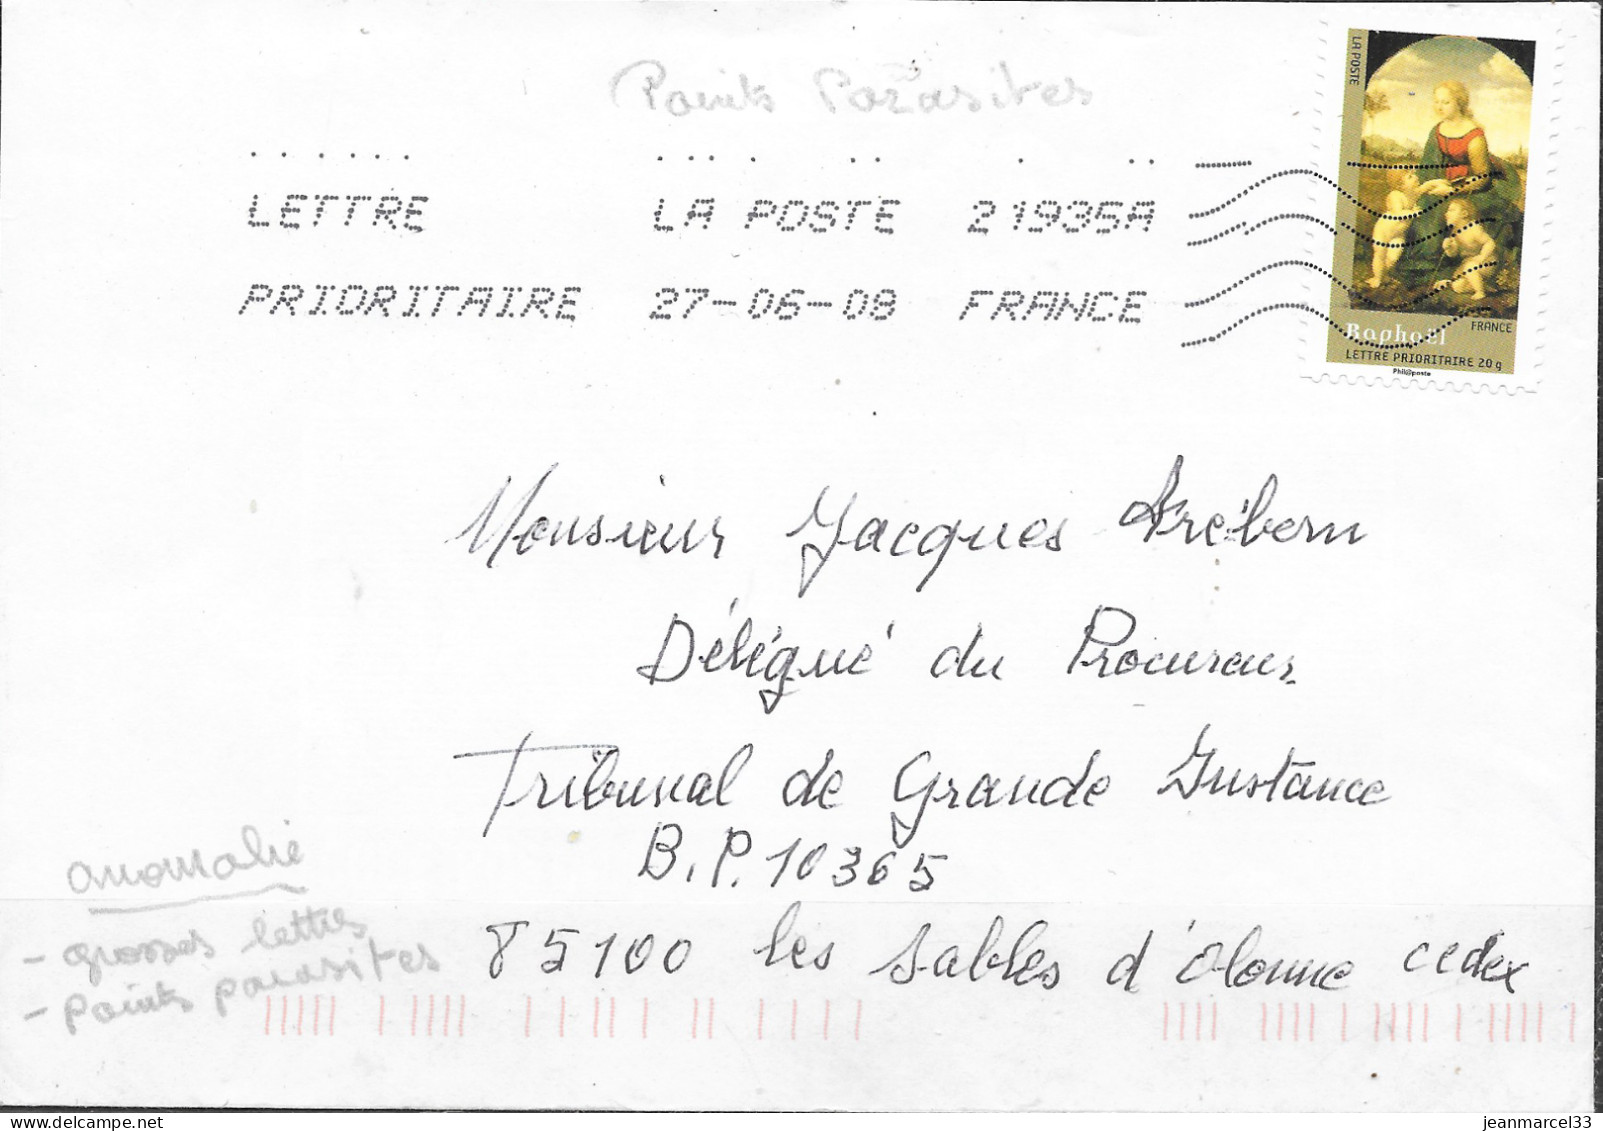 Points Parasites
LA POSTE
LETTRE LA POSTE 21935A
PRIORITAIRE 27-06-08 FRANCE
FRANCE
Raphaël
LETTRE PRIORITAIRE 20 g
Phil@poste
Monsieur Jacques
Délégué du Procureur
Tribunal de Grande Instance
B.P. 10365
85100 les Sables d'Olonne cedex
anomalie
- grosses lettres
- points parasites
jeanmarcel33